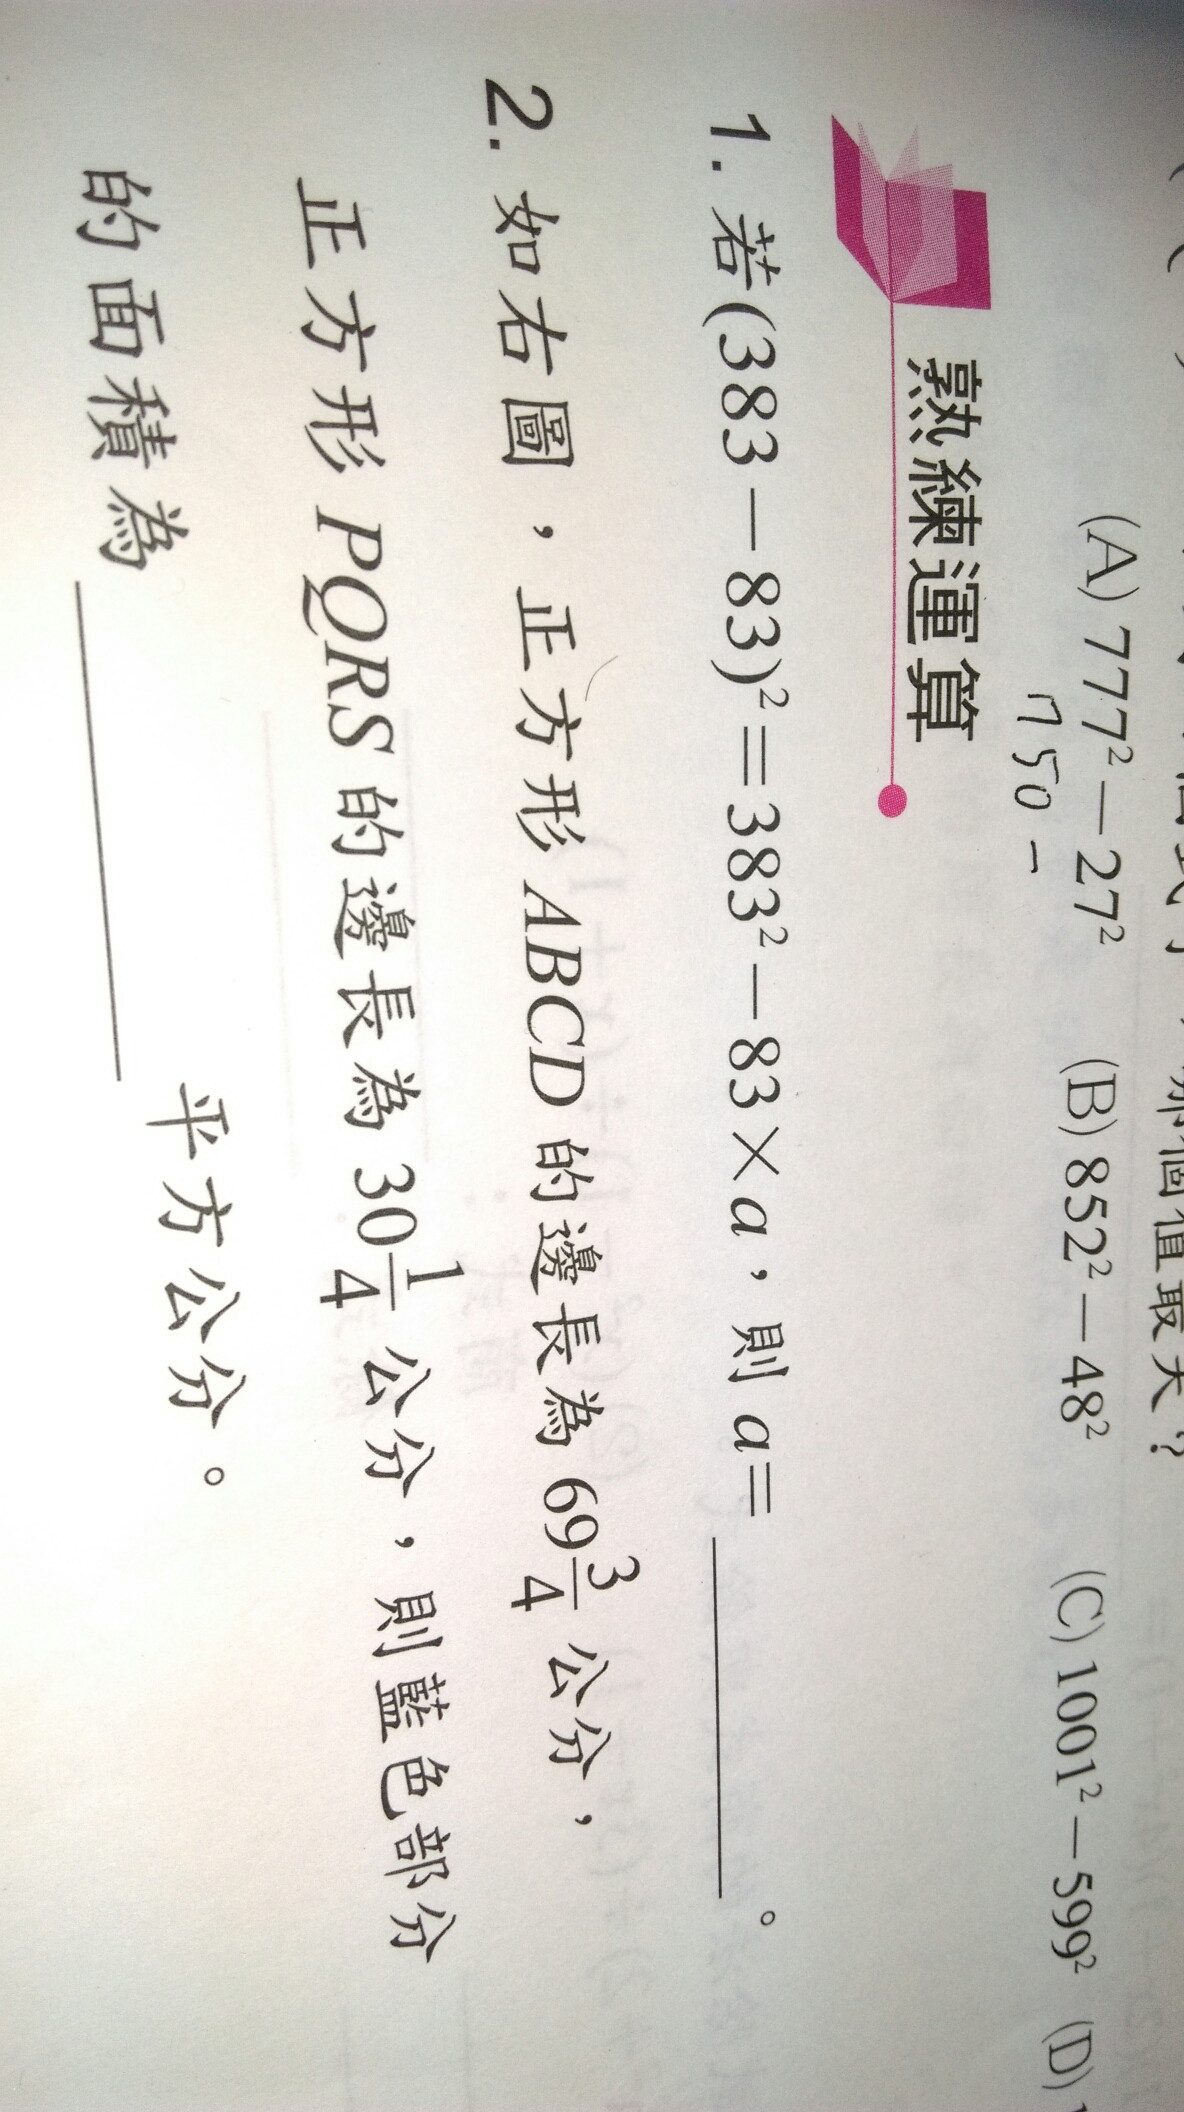 哪個值最大？
(A) 777² − 27² (B) 852² − 48² (C) 1001² − 599² (D)
750 −
熟練運算
1. 若(383 − 83)² = 383² − 83 × a，則 a= ＿＿＿＿。
2. 如右圖，正方形 ABCD 的邊長為 69 3/4 公分，
正方形 PQRS 的邊長為 30 1/4 公分，則藍色部分
的面積為 ＿＿＿＿ 平方公分。